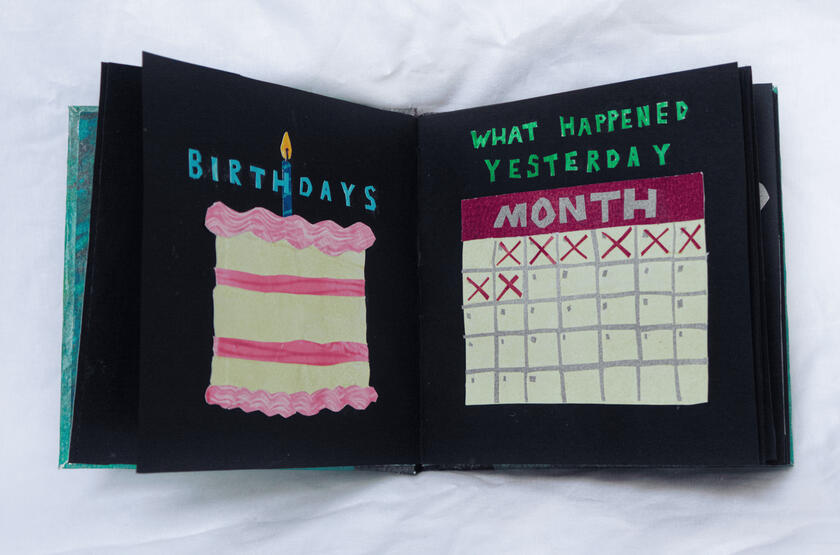 BIRTHDAYS
WHAT HAPPENED
YESTERDAY
MONTH